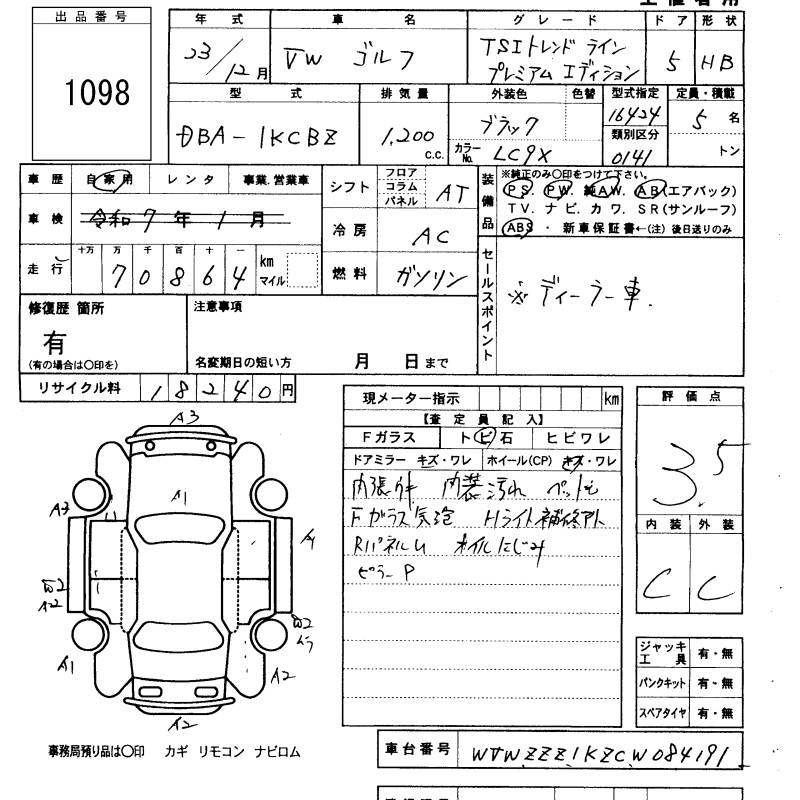 出品番号
1098
年式
23/12月
車名
VW ゴルフ
グレード
TSIトレンドライン
プレミアムエディション
ドア
5
形状
HB
型式
DBA-1KCBZ
排気量
1,200
c.c.
外装色
ブラック
色替
カラーNo.
LC9X
型式指定
16424
類別区分
0141
定員・積載
5 名
トン
車歴
自家用 レンタ 事業.営業車
車検
令和7年1月
走行
十万 万 千 百 十 一
70864
km
マイル
シフト
フロア
コラム
パネル
AT
冷房
AC
燃料
ガソリン
装備品
※純正のみ〇印をつけて下さい。
PS. PW. 純AW. AB(エアバック)
TV. ナビ. カワ. SR(サンルーフ)
ABS ・ 新車保証書←(注)後日送りのみ
セールスポイント
※ディーラー車.
修復歴 箇所
有
(有の場合は〇印を)
注意事項
名変期日の短い方 月 日まで
リサイクル料
18240円
現メーター指示
km
【査定員記入】
Fガラス
トビ石
ヒビワレ
ドアミラー キズ・ワレ
ホイール(CP) キズ・ワレ
内張ウキ 内装汚れ ペットモ
Fガラス気泡 Hライト補修アト
RパネルU オイルにじみ
ピラーP
評価点
3.5
内装
C
外装
C
A3
A1
A3
A1
W2
A2
W2
A1
A2
A2
ジャッキ
工具
有・無
パンクキット
有・無
スペアタイヤ
有・無
事務局預り品は〇印 カギ リモコン ナビロム
車台番号
WVWZZZ1KZCW084191